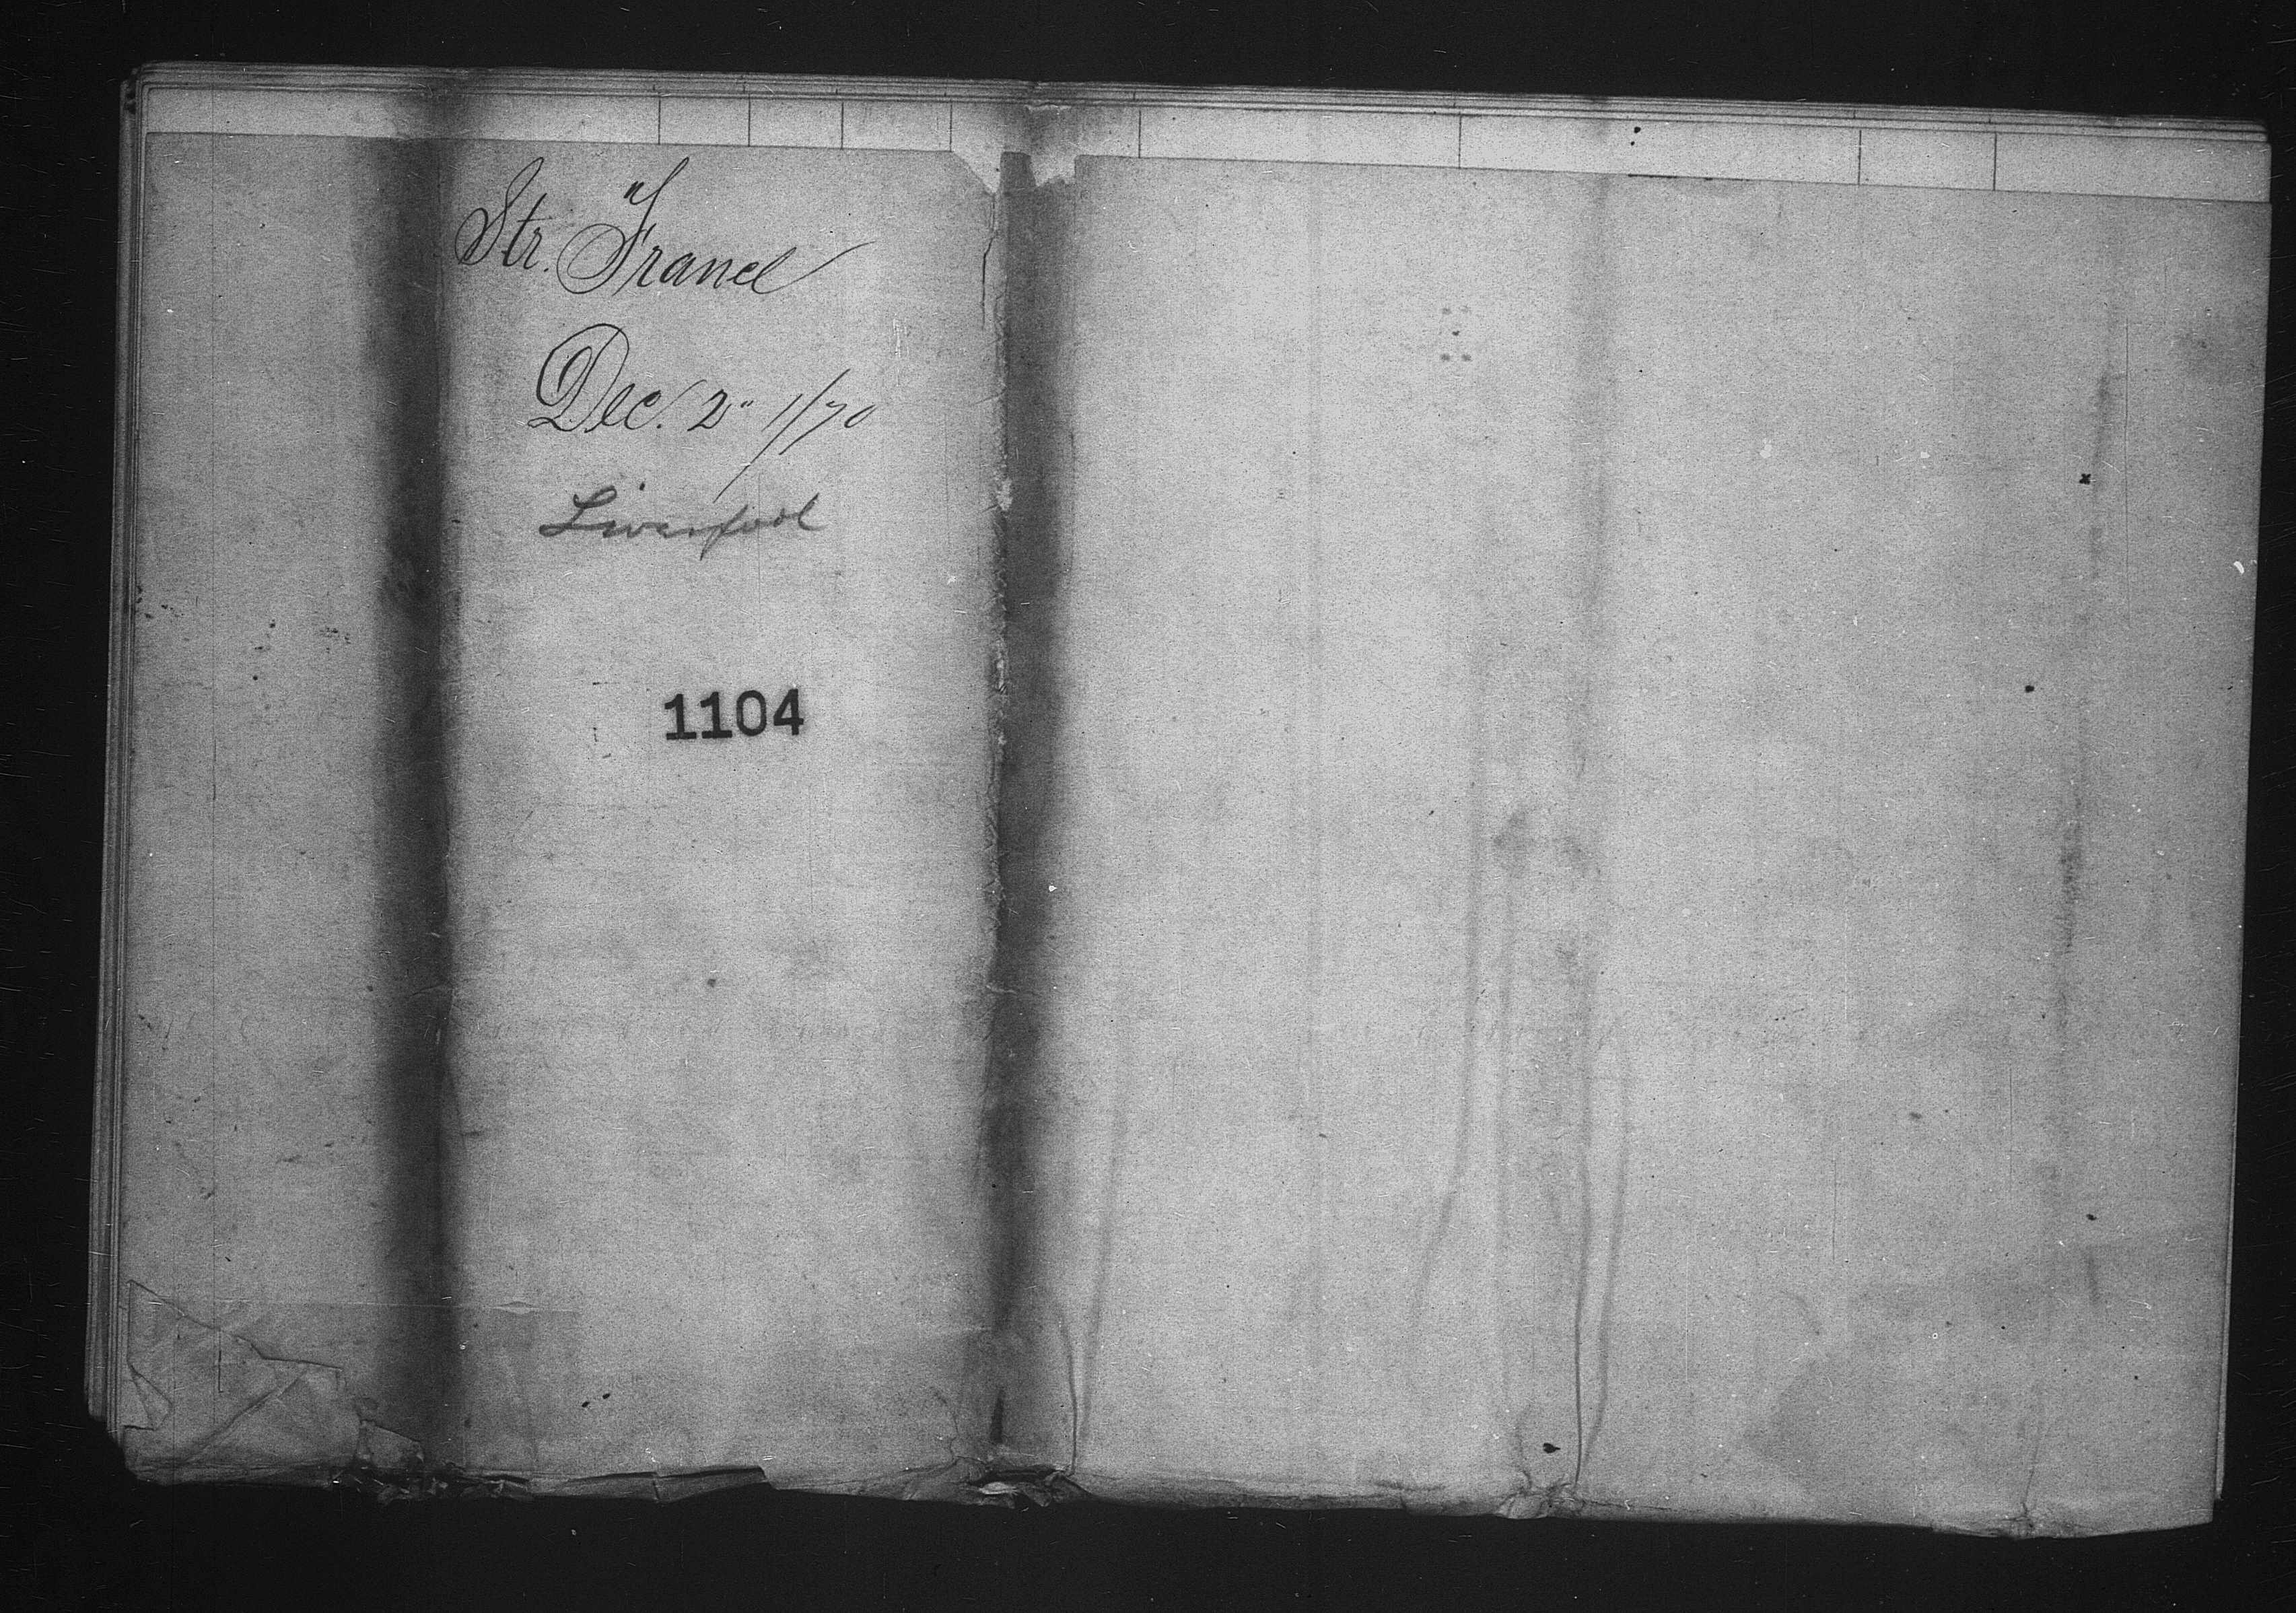 Str. "France
Dec. 2" 1/70
Liverpool
1104